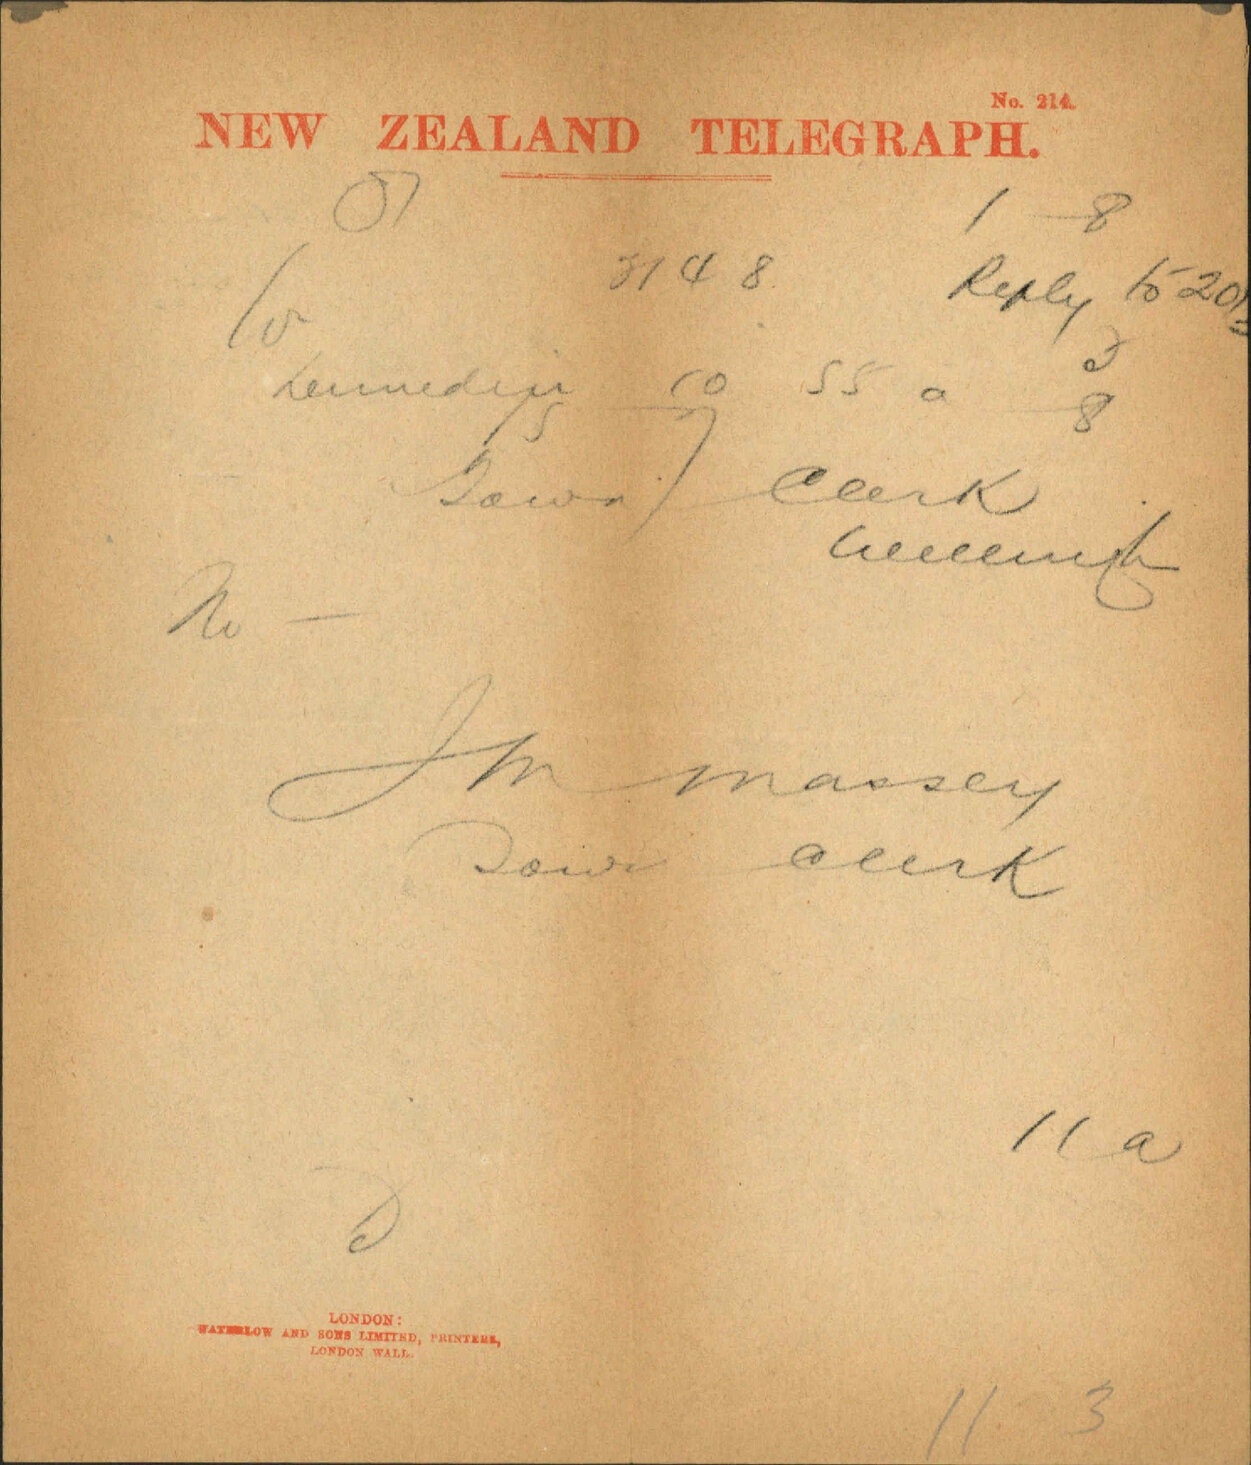 No. 214.
NEW ZEALAND TELEGRAPH.
1 8
3148
Reply to 2013
Dunedin 10 55 a 3 8
Town Clerk
Wellington
No —
J M Massey
Town Clerk
11 a
D
LONDON:
WATERLOW AND SONS LIMITED, PRINTERS,
LONDON WALL.
11 3